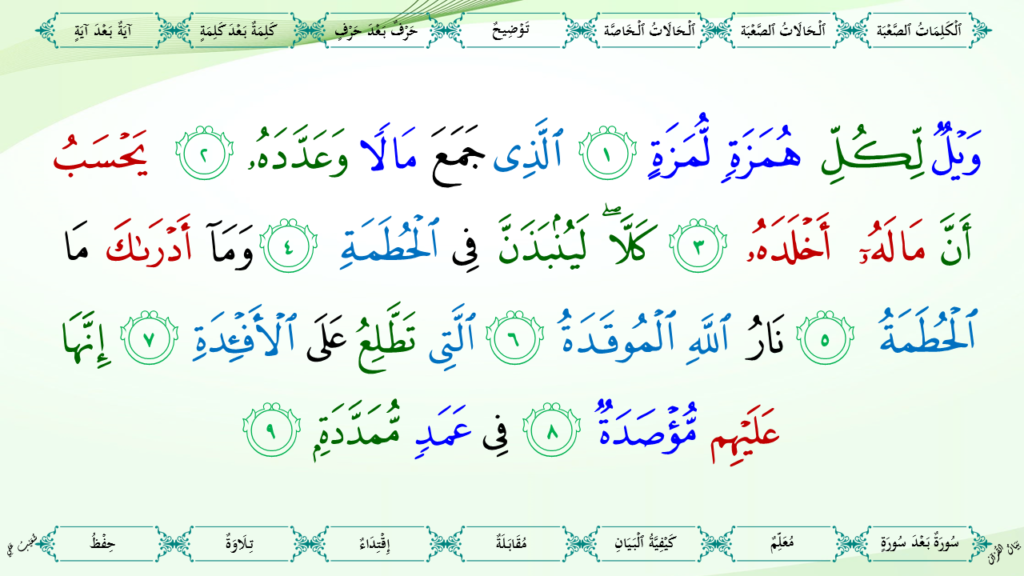 ٱلْكَلِمَاتُ ٱلصَّعْبَة ٱلْحَالَاتُ ٱلصَّعْبَة ٱلْحَالَاتُ ٱلْخَاصَّة تَوْضِيحٌ حَرْفٌ بَعْدَ حَرْفٍ كَلِمَةٌ بَعْدَ كَلِمَةٍ آيَةٌ بَعْدَ آيَةٍ
وَيْلٌ لِّكُلِّ هُمَزَةٍ لُّمَزَةٍ ١ ٱلَّذِى جَمَعَ مَالًا وَعَدَّدَهُۥ ٢ يَحْسَبُ
أَنَّ مَالَهُۥٓ أَخْلَدَهُۥ ٣ كَلَّا ۖ لَيُنۢبَذَنَّ فِى ٱلْحُطَمَةِ ٤ وَمَآ أَدْرَىٰكَ مَا
ٱلْحُطَمَةُ ٥ نَارُ ٱللَّهِ ٱلْمُوقَدَةُ ٦ ٱلَّتِى تَطَّلِعُ عَلَى ٱلْأَفْـِٔدَةِ ٧ إِنَّهَا
عَلَيْهِم مُّؤْصَدَةٌ ٨ فِى عَمَدٍ مُّمَدَّدَةٍۭ ٩
سُورَةٌ بَعْدَ سُورَةٍ مُعَلِّمٌ كَيْفِيَّةُ ٱلْبَيَانِ مُقَابَلَةٌ إِقْتِدَاءٌ تِلَاوَةٌ حِفْظٌ